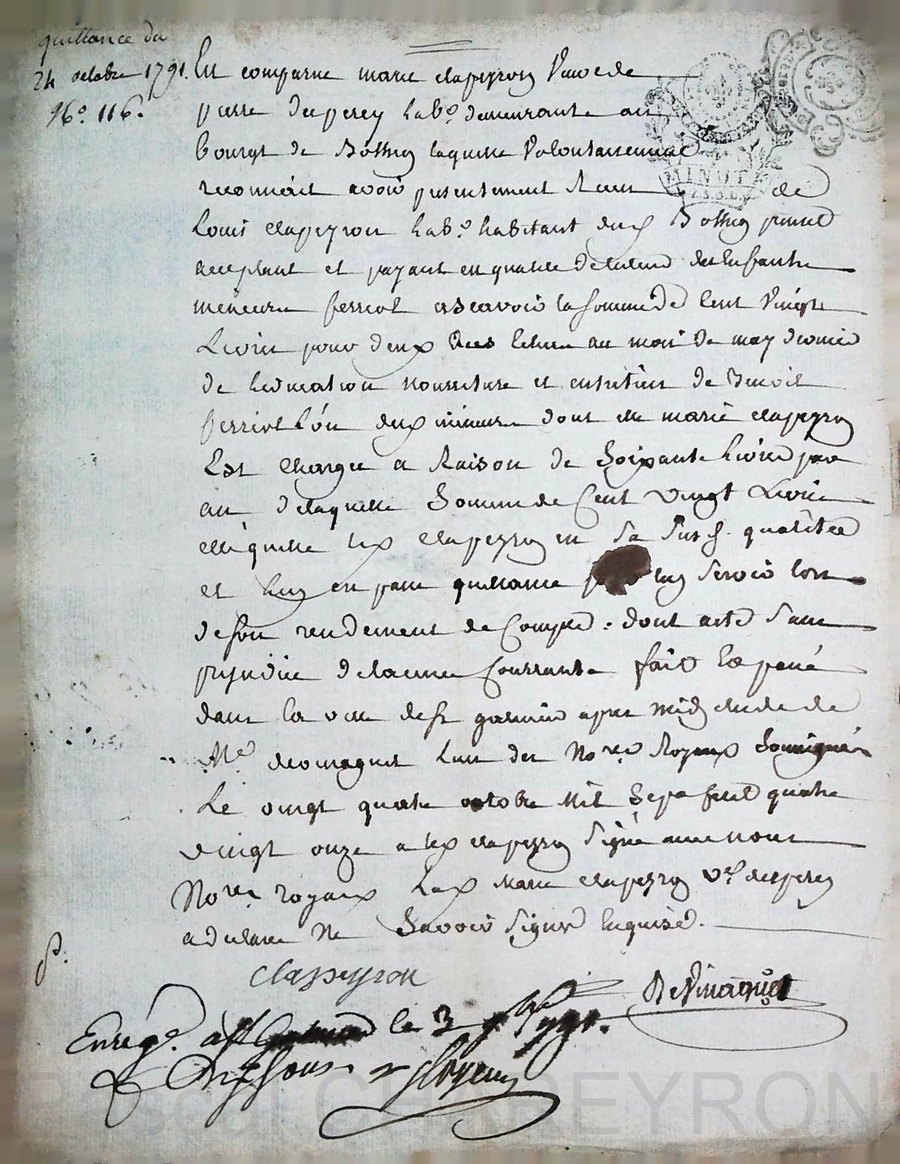 quittance du
24 octobre 1791.
N°. 116.
Est comparue marie clapeyron veuve de
pierre desperey lab.r demeurante au
bourgt de Bothéon laquelle volontairement
reconnoit avoir presentement Receu de
Louis clapeyron lab.r habitant dud. Bothéon present
acceptant et payant en qualité de tuteur des enfants
mineurs ferriol ascavoir la somme de Cent vingt
Livres pour deux echus au moi de may dernier
de nourriture et entretien de Benoit
ferriol l'un desd. mineurs dont elle marie clapeyron
Est chargée a Raison de Soixante livres par
an de laquelle Somme de Cent vingt Livres
elle quitte led. clapeyron en sa susd. qualitée
et luy en passe quittance pour luy servir lors
de son rendement de Compte : dont acte sans
prejudice de lannée Courrante fait et passé
dans la ville de st galmier apres midy etude de
Me. l'un des No.res Royaux Soussignés
Le vingt quatre octobre Mil Sept Cent quatre
vingt onze a led. clapeyron Signé avec nous
No.res royaux Lad. Marie clapeyron v.e desperey
a declaré Ne Savoir signer requise.
Clapeyron
Enrég.é à St Galmier le 3 1791.
MINUT
Pascal CHAREYRON